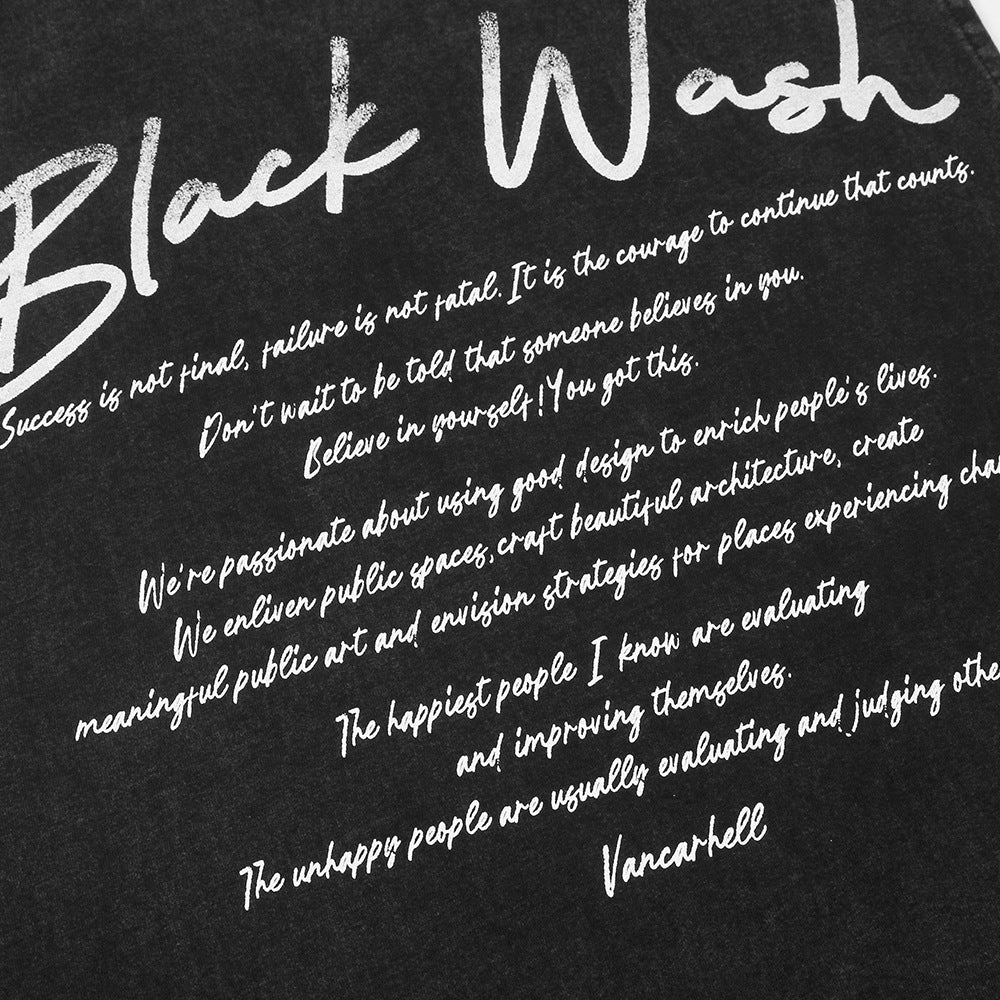 Black Wash
Success is not final, failure is not fatal. It is the courage to continue that counts.
Don't wait to be told that someone believes in you.
Believe in yourself! You got this.
We're passionate about using good design to enrich people's lives.
We enliven public spaces, craft beautiful architecture, create
meaningful public art and envision strategies for places experiencing
The happiest people I know are evaluating
and improving themselves.
The unhappy people are usually evaluating and judging
Vancarhell